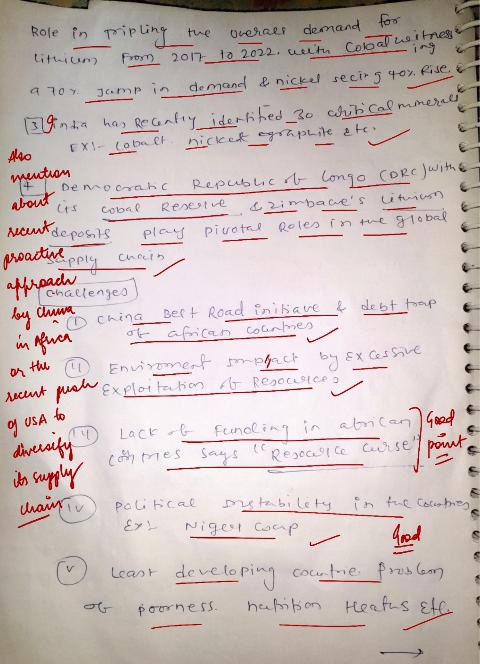 Role in tripling the overall demand for
lithium from 2017 to 2022. with Cobal witness
ing
a 70% Jump in demand & nickel seeing 40% Rise.
3 India has Recently identified 30 critical minerals
Ex:- cobalt. nickel graphite etc.
4 Democratic Republic of Congo (DRC) with
its cobal Reserve & zimbave's lithium
deposits plays pivotal Roles in the global
supply chain
Also
mention
about
recent
proactive
approach
by china
in Africa
or the
recent push
of USA to
diversify
its supply
chain
challenges
(i) China Belt Road initiave & debt trap
of african countries
(ii) Enviroment Impact by Excessive
Exploitation of Resources
(iii) Lack of Funding in african
countries says "Resource curse"
Good
point
(iv) Political instability in the countries
Ex:- Niger Coup
Good
(v) Least developing countrie problem
of poorness. nutrition Heaths Etc.